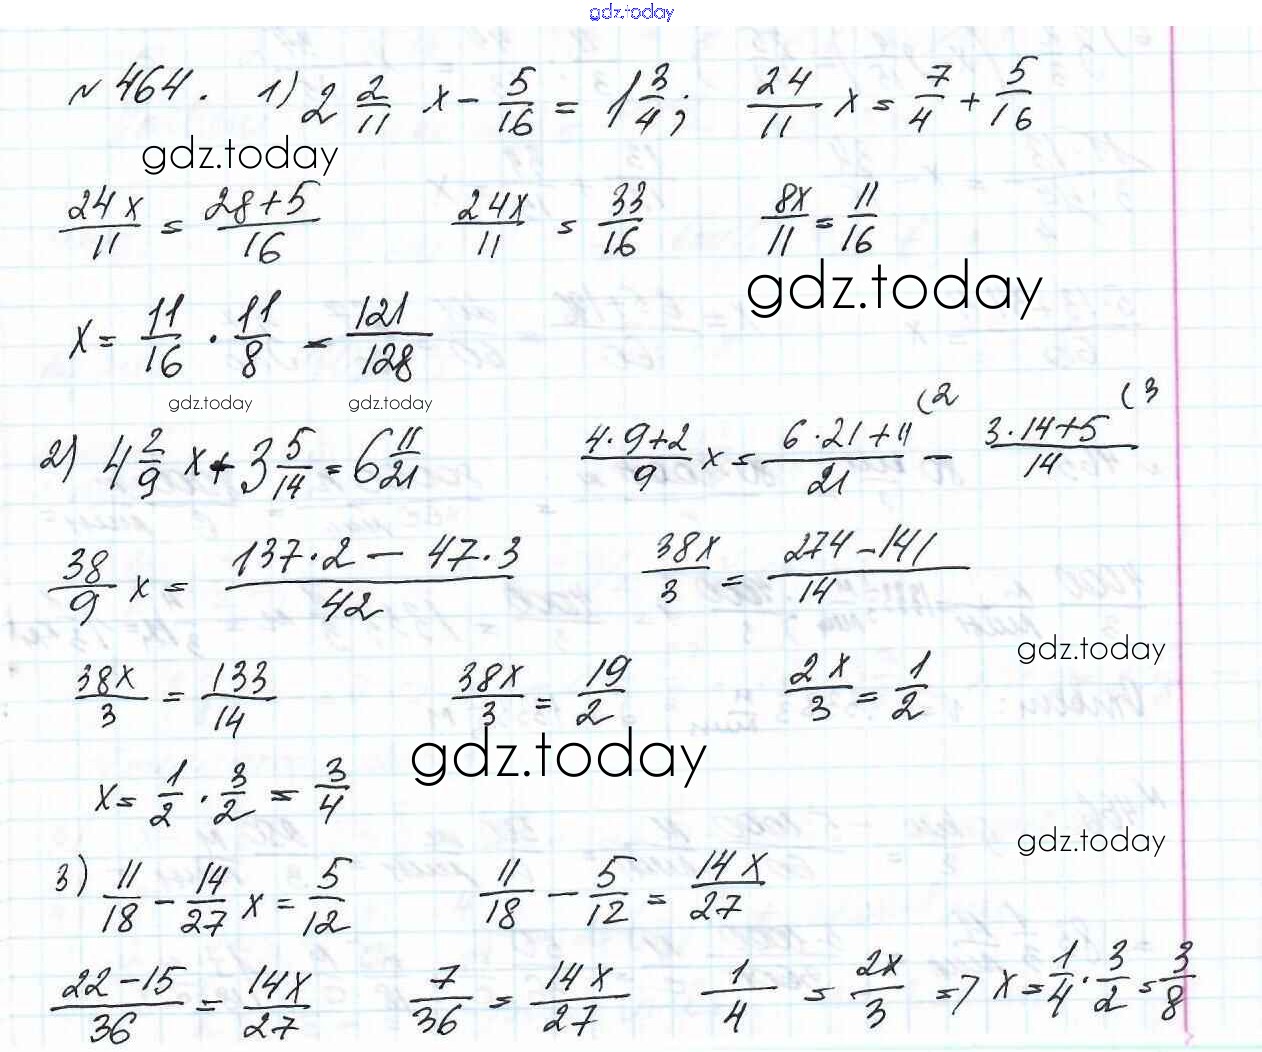 gdz.today
№464. 1) 2 2/11 x - 5/16 = 1 3/4; 24/11 x = 7/4 + 5/16
gdz.today
24x/11 = 28+5/16 24x/11 = 33/16 8x/11 = 11/16
gdz.today
x = 11/16 · 11/8 = 121/128
gdz.today gdz.today
2) 4 2/9 x + 3 5/14 = 6 11/21 4·9+2/9 x = 6·21+11/21 (2 - 3·14+5/14 (3
38/9 x = 137·2 - 47·3/42 38x/3 = 274-141/14
gdz.today
38x/3 = 133/14 38x/3 = 19/2 2x/3 = 1/2
gdz.today
x = 1/2 · 3/2 = 3/4
gdz.today
3) 11/18 - 14/27 x = 5/12 11/18 - 5/12 = 14x/27
22-15/36 = 14x/27 7/36 = 14x/27 1/4 = 2x/3 => x = 1/4 · 3/2 = 3/8